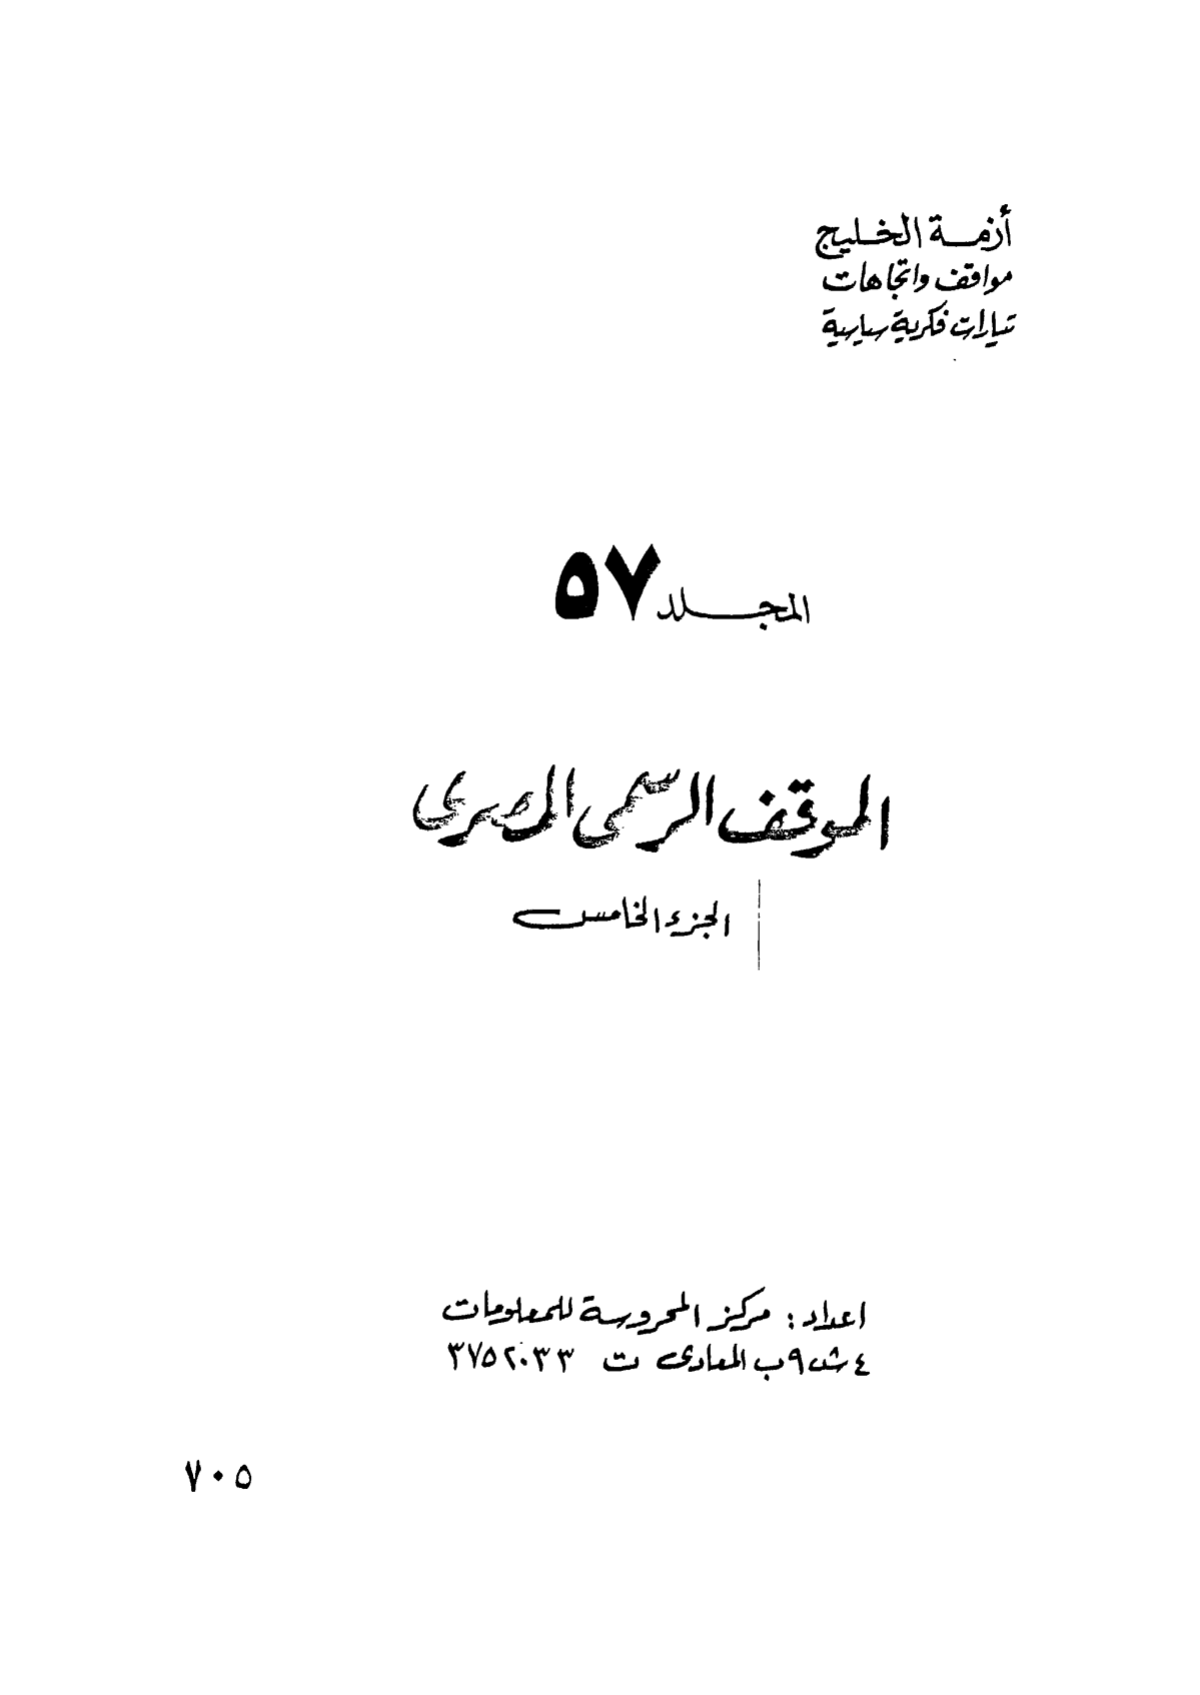 أزمة الخليج
مواقف واتجاهات
تيارات فكرية سياسية
المجلد ٥٧
الموقف الرسمى المصرى
الجزء الخامس
اعداد : مركز المحروسة للمعلومات
٤ ش ٩ ب المعادى ت ٣٧٥٢٠٣٣
٧٠٥